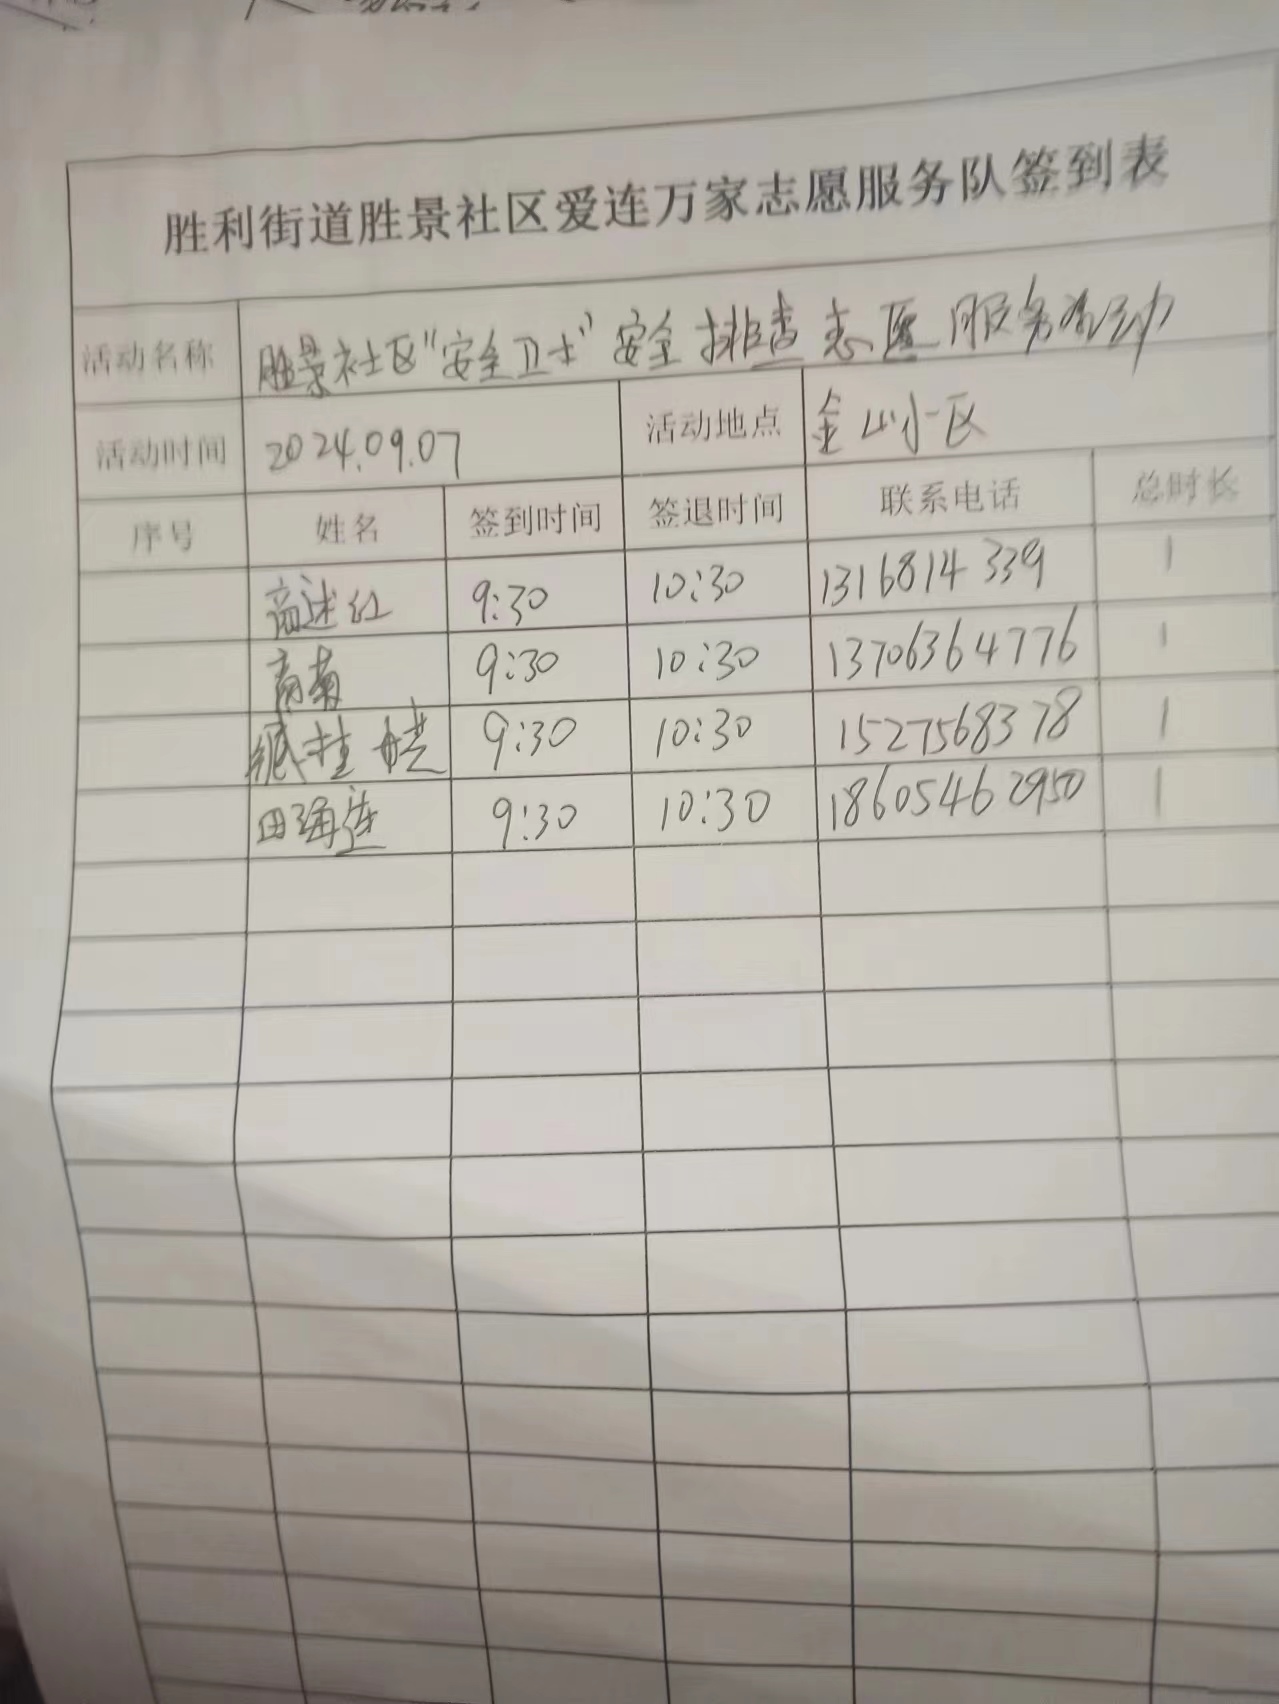 胜利街道胜景社区爱连万家志愿服务队签到表
活动名称 胜景社区"安全卫士"安全排查志愿服务活动
活动时间 2024.09.07 活动地点 金山小区
序号 姓名 签到时间 签退时间 联系电话 总时长
高述红 9:30 10:30 1316814339 1
高菊 9:30 10:30 13706364776 1
桂 9:30 10:30 1527568378 1
田海连 9:30 10:30 18605462950 1